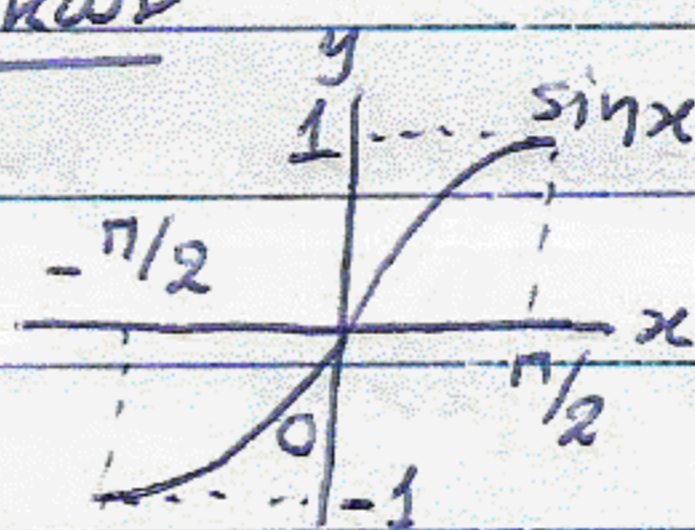 y
1
sin x
- π/2
x
π/2
0
-1